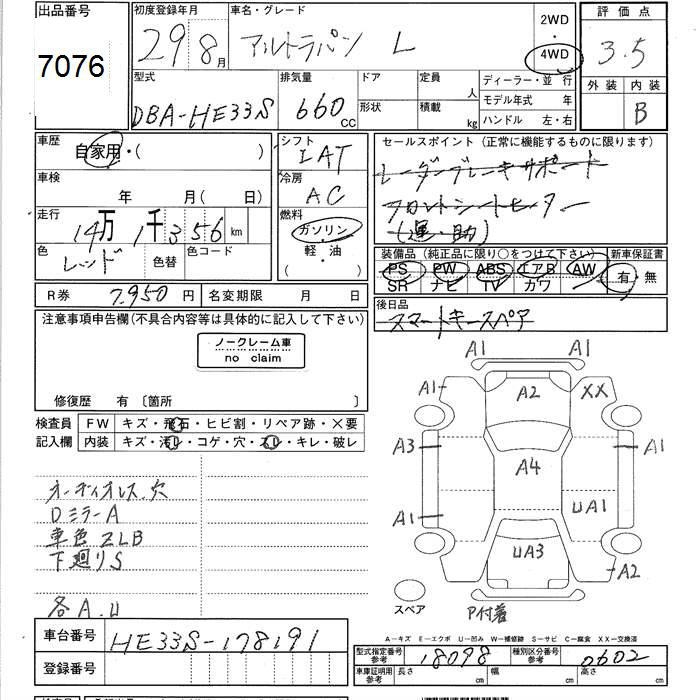 出品番号
7076
初度登録年月
29 8月
車名・グレード
アルトラパン L
2WD
・
4WD
評価点
3.5
外装 内装
B
型式
DBA-HE33S
排気量
660 CC
ドア
形状
定員 人
積載 kg
ディーラー・並行
モデル年式 年
ハンドル 左・右
車歴
自家用・( )
車検
年 月( 日)
走行
14万1千356 km
色
レッド
色替
色コード
シフト
IAT
冷房
AC
燃料
ガソリン
・
軽・油
( )
セールスポイント(正常に機能するものに限ります)
レーダーブレーキサポート
フロントシートヒーター
(運・助)
装備品(純正品に限り○をつけて下さい)
新車保証書
PS PW ABS エアB AW
SR ナビ TV カワ
有・無
後日品
スマートキースペア
R券 7,950 円
名変期限 月 日
注意事項申告欄(不具合内容等は具体的に記入して下さい)
ノークレーム車
no claim
修復歴 有〔箇所
検査員
記入欄
FW キズ・飛石・ヒビ割・リペア跡・×要
内装 キズ・汚レ・コゲ・穴・スレ・キレ・破レ
オーディオレス穴
DミラーA
車色ZLB
下廻りS
各A.U
A1 A1
A1 A2 XX
A3 A4 A1
A1 UA1
UA3
A2
スペア
P付着
A-キズ E-エクボ U-凹み W-補修跡 S-サビ C-腐食 XX-交換済
車台番号 HE33S-178191
登録番号
型式指定番号
参考
18098
種別区分番号
参考
0602
車庫証明用
参考
長さ cm
幅 cm
高さ cm